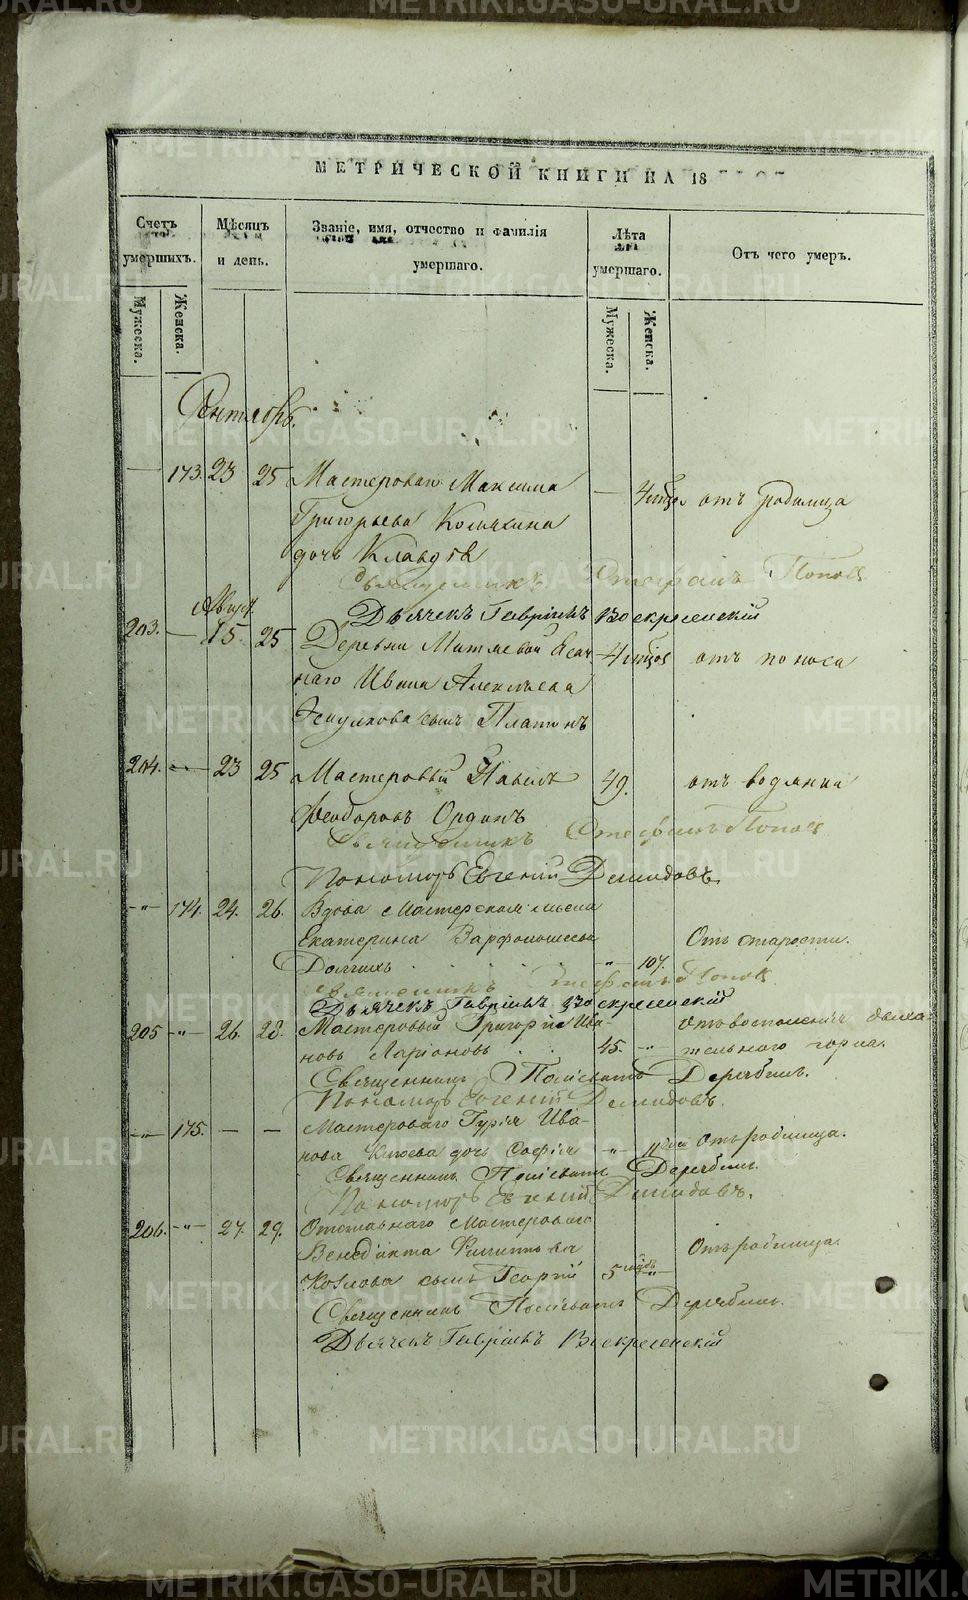 МЕТРИЧЕСКОЙ КНИГИ НА 18
Счетъ умершихъ.
Мѣсяцъ и день.
Званіе, имя, отчество и фамилія умершаго.
Лѣта умершаго.
Отъ чего умеръ.
Мужеска.
Женска.
Мужеска.
Женска.
Сентябрь.
173. 23 25 Мастероваго Максима — 4 отъ родимца
Григорьева
дочь Клавдія
Священникъ Стефанъ Поповъ
Дьячекъ Гавріилъ Воскресенскій
203. — 15. 25 Деревни 4 отъ поноса
наго Ивана Алексѣева
сынъ Платонъ
204. — 23 25 Мастеровый Павелъ 49. отъ водянки
Феодоровъ
Священникъ Стефанъ Поповъ
Пономарь Евгеній Демидовъ.
-"- 174. 24. 26. Вдова Мастерская жена
Екатерина Варфоломеева Отъ старости.
Долгихъ . . . . -"- 107.
Священникъ Стефанъ Поповъ
Дьячекъ Гавріилъ Воскресенскій
205 -"- 26. 28. Мастеровый Григорій Ива- Отъ воспаленія дыха-
новъ Ларіоновъ . . 45. -"- тельнаго горла.
Священникъ Деребинъ.
Пономарь Евгеній Демидовъ.
-"- 175. — — Мастероваго Гурія Ива-
нова дочь Софія -"- Отъ родимца.
Священникъ Деребинъ.
Пономарь Евгеній Демидовъ.
206. -"- 27. 29. Отставнаго Мастероваго
Венедикта Филиппова Отъ родимца.
Козлова сынъ Георгій 5 -"-
Священникъ Деребинъ.
Дьячекъ Гавріилъ Воскресенскій
METRIKI.GASO-URAL.RU